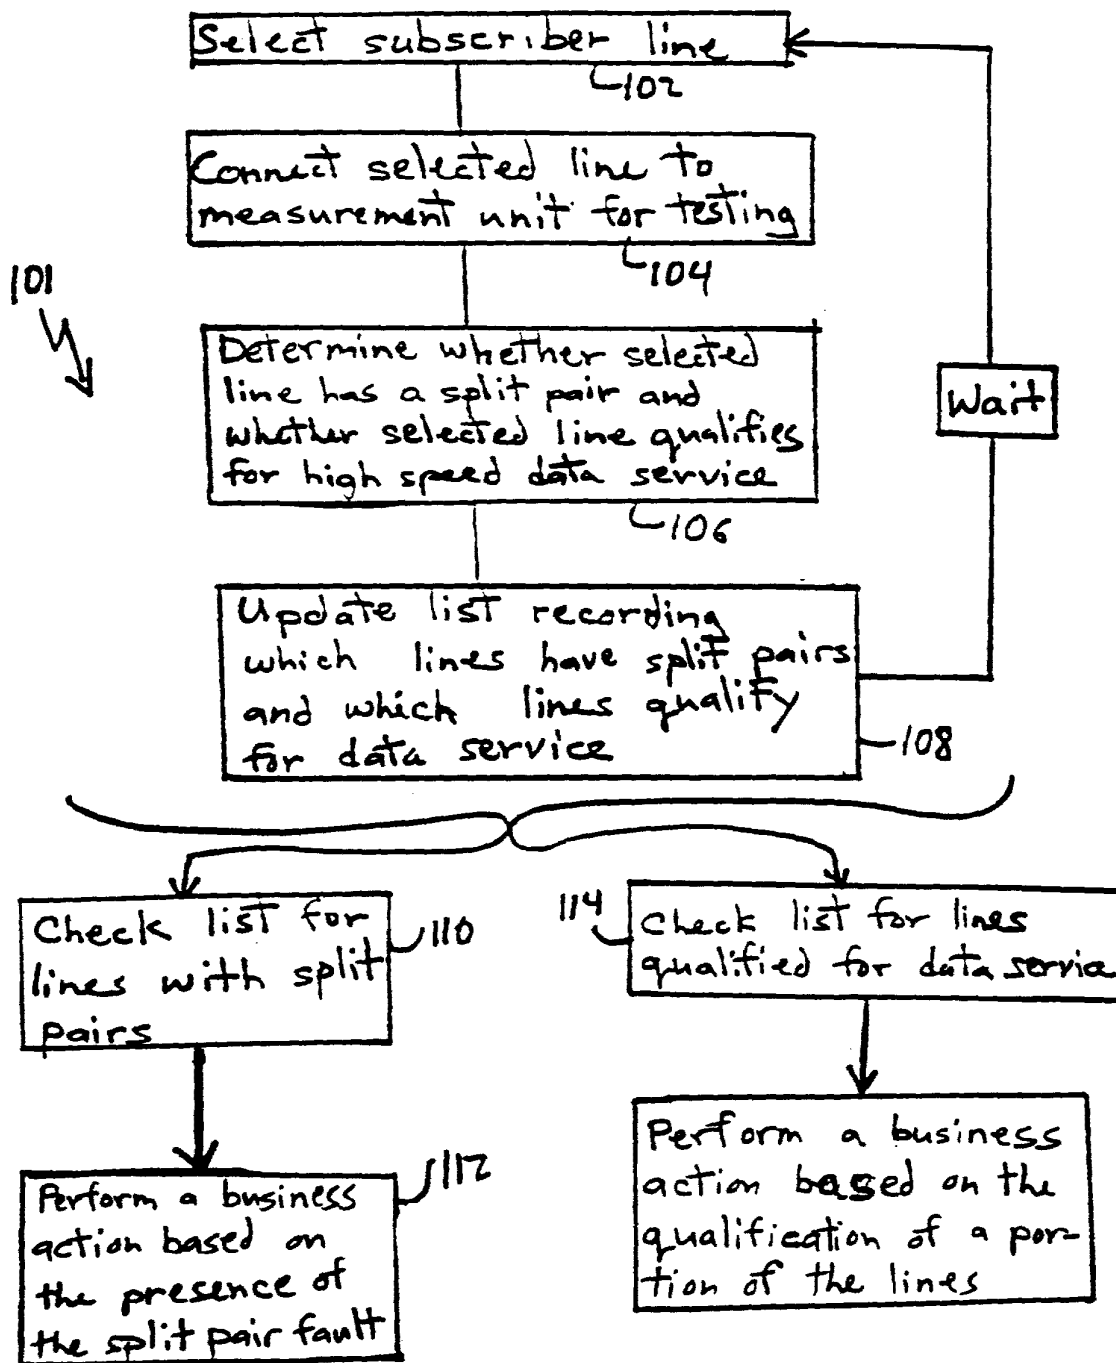 Select subscriber line
102
Connect selected line to
measurement unit for testing
104
101
Determine whether selected
line has a split pair and
whether selected line qualifies
for high speed data service
106
Wait
Update list recording
which lines have split pairs
and which lines qualify
for data service
108
Check list for
lines with split
pairs
110
114
Check list for lines
qualified for data service
Perform a business
action based on
the presence of
the split pair fault
112
Perform a business
action based on the
qualification of a por-
tion of the lines